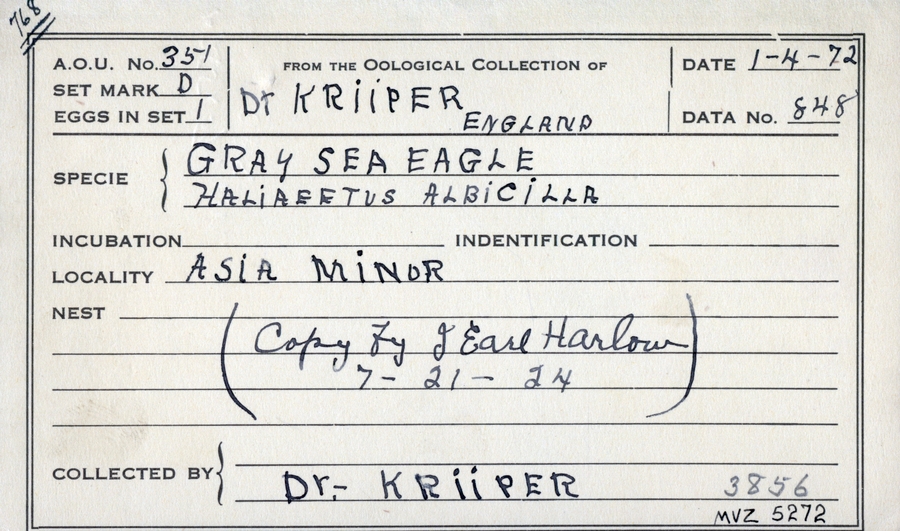 768
A.O.U. No. 351
SET MARK D
EGGS IN SET 1
FROM THE OOLOGICAL COLLECTION OF
Dr KRiiPER
ENGLAND
DATE 1-4-72
DATA No. 848
SPECIE
GRAY SEA EAGLE
HALIAEETUS ALBICILLA
INCUBATION INDENTIFICATION
LOCALITY ASIA MINOR
NEST
(Copy By J Earl Harlow
7- 21- 24)
COLLECTED BY Dr.- KRiiPER
3856
MVZ 5272